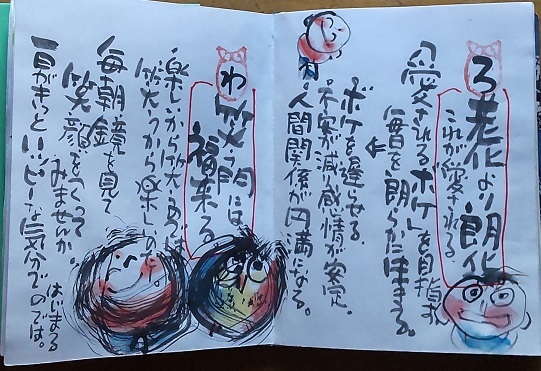 ろ
老化より朗化
これが愛される
愛される「ボケ」を目指す
毎日を朗らかに生きる。
ボケを遅らせる
不安が減り感情が安定。
人間関係が円満になる。
わ
笑う門には
福来る
楽しいから笑うのでは
笑うから楽しい。
毎朝鏡を見て
笑顔をつくって
みませんか
はじまる
一日がきっとハッピーな気分でのでは。